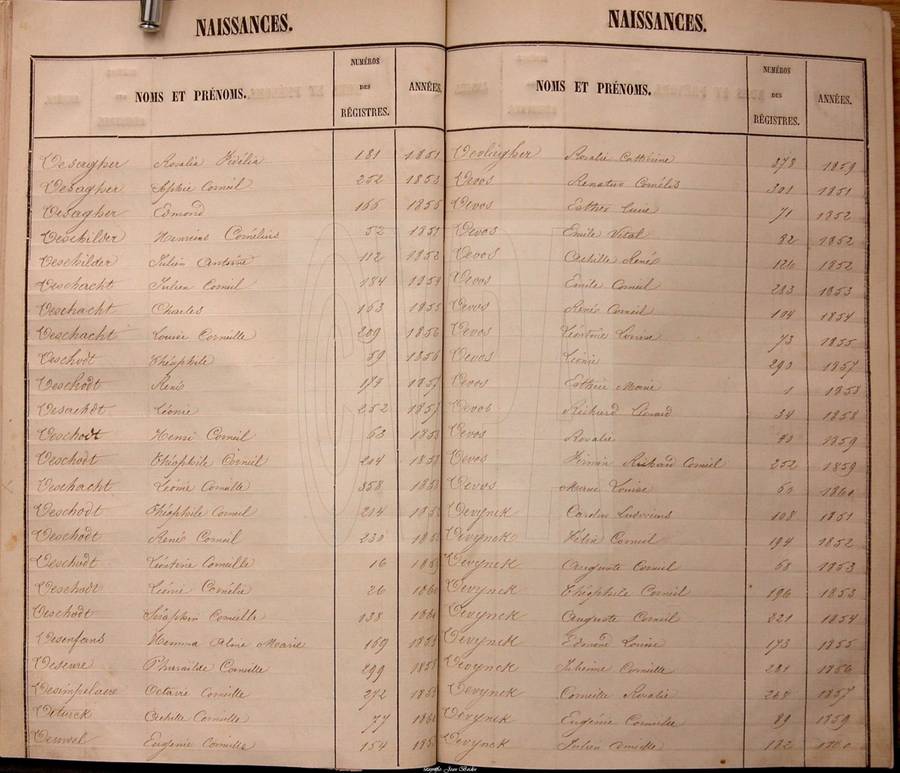 NAISSANCES.
NOMS ET PRÉNOMS.
NUMÉROS
DES
RÉGISTRES.
ANNÉES.
Desagher Rosalie Fidélia 181 1851
Desagher Sophie Corneil 252 1853
Desagher Edmond 1856
Deschilder Henricus Cornélius 52 1851
Deschilder Julien Antoine 112 1852
Deschacht Julien Corneil 184 1854
Deschacht Charles 163 1855
Deschacht Louise Corneille 209 1856
Deschodt Théophile 59 1856
Deschodt René 179 1857
Léonie 252 1857
Deschodt Henri Corneil 63
Deschodt Théophile Corneil 204
Deschacht Léonie Corneille 358
Deschodt Théophile Corneil 204
Deschodt René Corneil 230
Deschodt Léontine Corneille 16
Deschodt Léonie Cornélie 26
Deschodt Séraphin Corneille 138
Desenfans Hemma Aline Marie 169
Pharailde Corneille 299
Octavie Corneille 272
Achille Corneille 77
Eugenie Corneille 154
NAISSANCES.
NOMS ET PRÉNOMS.
NUMÉROS
DES
RÉGISTRES.
ANNÉES.
Rosalie Cathérine 378 1859
Devos Renatus Cornélis 301 1851
Devos Esther Lucie 71 1852
Devos Emile Vital 82 1852
Devos Achille René 126 1852
Devos Emile Corneil 283 1853
Devos René Corneil 104 1854
Devos Léontine Louise 73 1855
Devos Léonie 290 1857
Devos Esthère Marie 1 1858
Devos Richard Léonard 34 1858
Devos Rosalie 1859
Devos Firmin Richard Corneil 252 1859
Devos Marie Louise 1860
Devynck Carolus Ludovicus 108 1851
Devynck Félix Corneil 194 1852
Devynck Auguste Corneil 68 1853
Devynck Théophile Corneil 196 1853
Devynck Auguste Corneil 221 1854
Devynck Edmond Louise 173 1855
Devynck Julienne Corneille 281 1856
Devynck Corneille Rosalie 268 1857
Devynck Eugénie Corneille 89 1859
Devynck Julien 182 1860